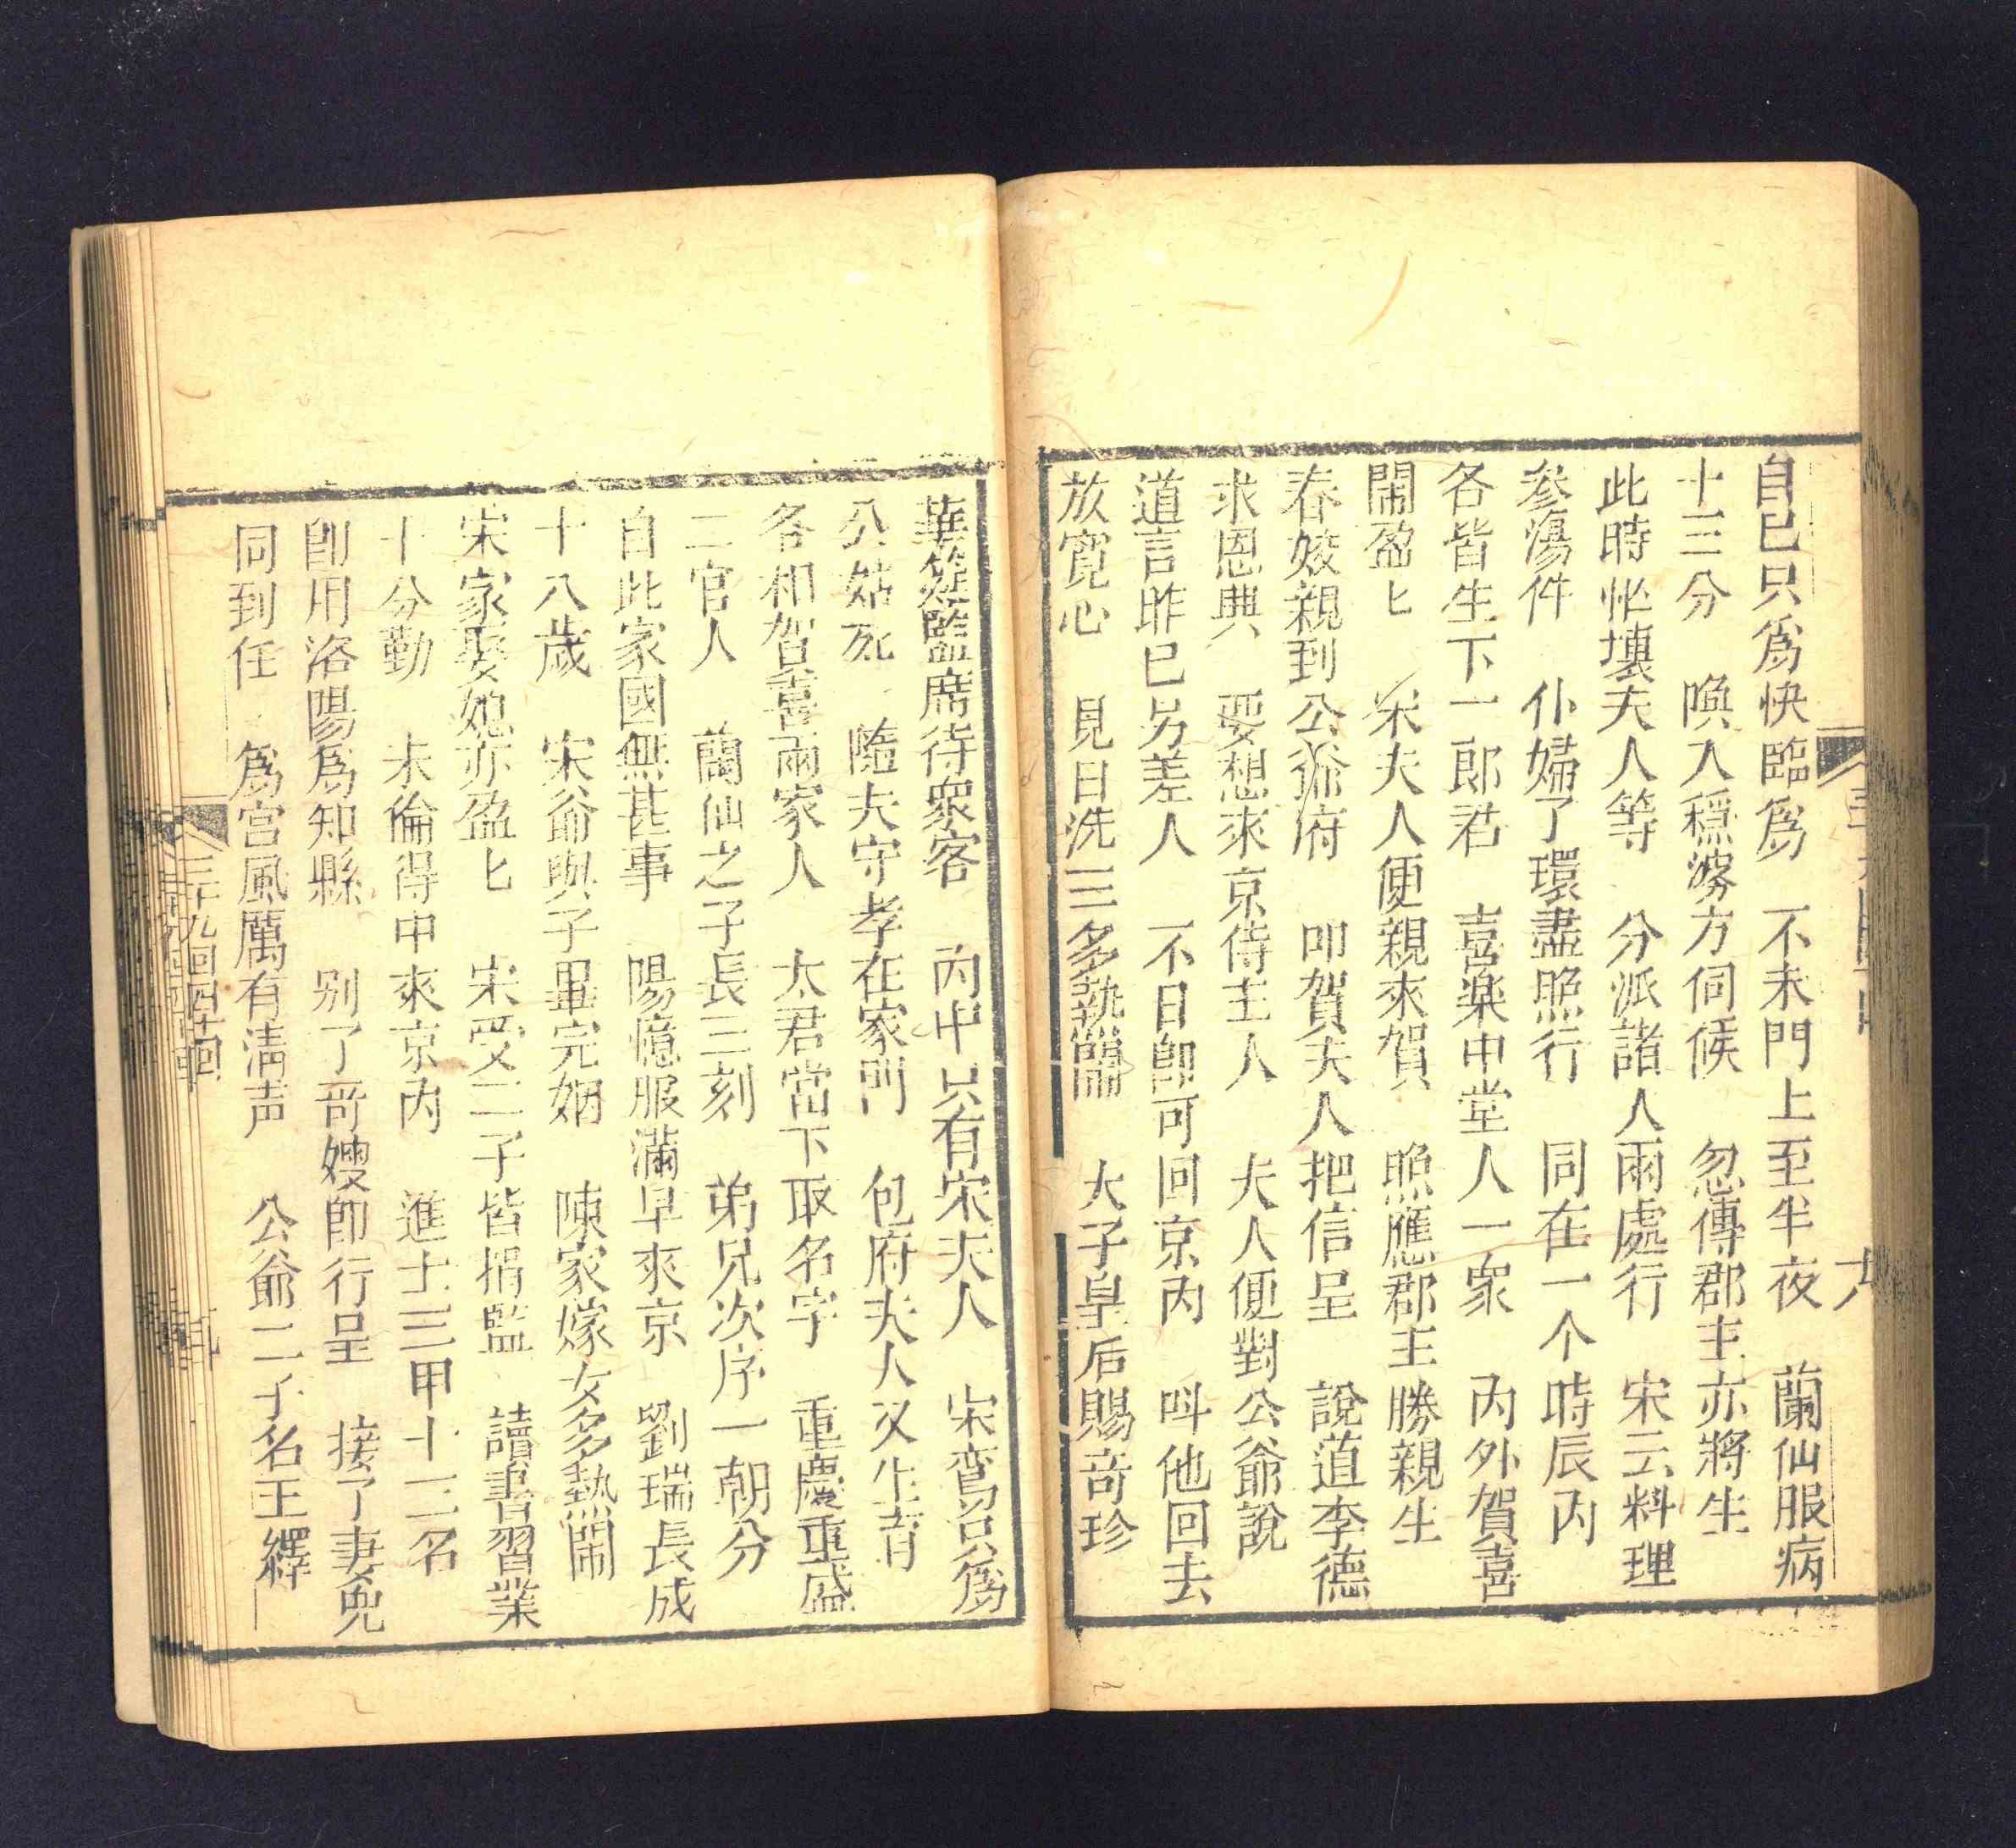 自已只為快臨為　不未門上至半夜　蘭仙服病
十三分　喚入穩婆方伺候　忽傳郡主亦將生
此時忙壞夫人等　分派諸人兩處行　宋云料理
參湯件　仆婦了環盡照行　同在一个時辰內
各皆生下一郎君　喜楽中堂人一衆　內外賀喜
鬧盈匕　宋夫人便親來賀　照應郡主勝親生
春姣親到公爺府　叩賀夫人把信呈　說道李德
求恩典　要想來京侍主人　夫人便對公爺說
道言昨已另差人　不日卽可回京內　呌他回去
放寬心　見日洗三多熱鬧　太子皇后賜奇珍
華筵監席待衆客　內中只有宋夫人　宋鸞只為
公姑死　隨夫守孝在家門　包府夫人又生育
各相賀喜兩家人　太君當下取名字　重慶重盛
二官人　蘭仙之子長三刻　弟兄次序一朝分
自此家國無甚事　陽憶服滿早來京　劉瑞長成
十八歲　宋爺與子畢完姻　陳家嫁女多熱鬧
宋家娶媳亦盈匕　宋受二子皆捐監　讀書習業
十分勤　未倫得中來京內　進士三甲十二名
卽用洛陽為知縣　別了哥嫂卽行呈　接了妻兒
同到任　為宮風厲有淸声　公爺二子名王繹
三十九回四十回